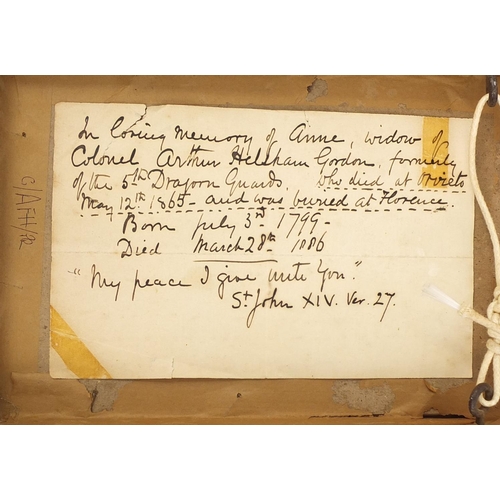 In loving memory of Anne, widow of
Colonel Arthur Helsham Gordon, formerly
of the 5th Dragoon Guards, who died at Orvieto
May 12th 1865 - and was buried at Florence.
Born July 3rd 1799 -
Died March 28th 1886
"My peace I give unto You".
St John XIV. Ver. 27.
C/AFH/12